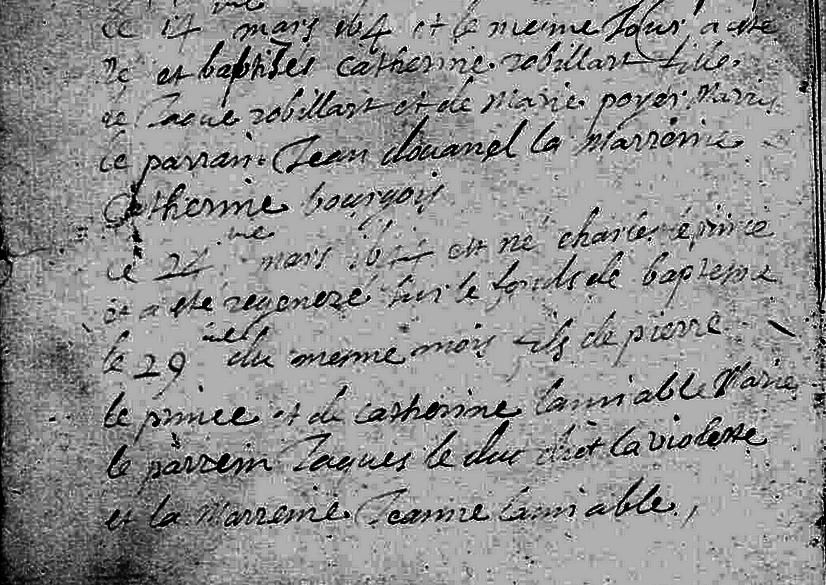 ce 17 me mars 164 et le meime Jour a este
né et baptises catherine robillart fille
de Jaque robillart et de Marie poyer Mariez
le parrain Jean douanel la Marreine
Catherine bourgois
ce 24 me mars est né charle leprince
et a esté regeneré sur le fonds de bapteme
le 29 du meme mois fils de pierre
le prince et de catherine lamiable Marie
le parrein Jaques le duc dict la violette
et la Marreine Jeanne lamiable,